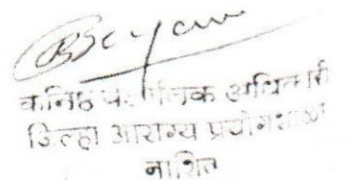 कनिष्ठ अधिकारी
जिल्हा आरोग्य प्रयोगशाळा
नाशिक